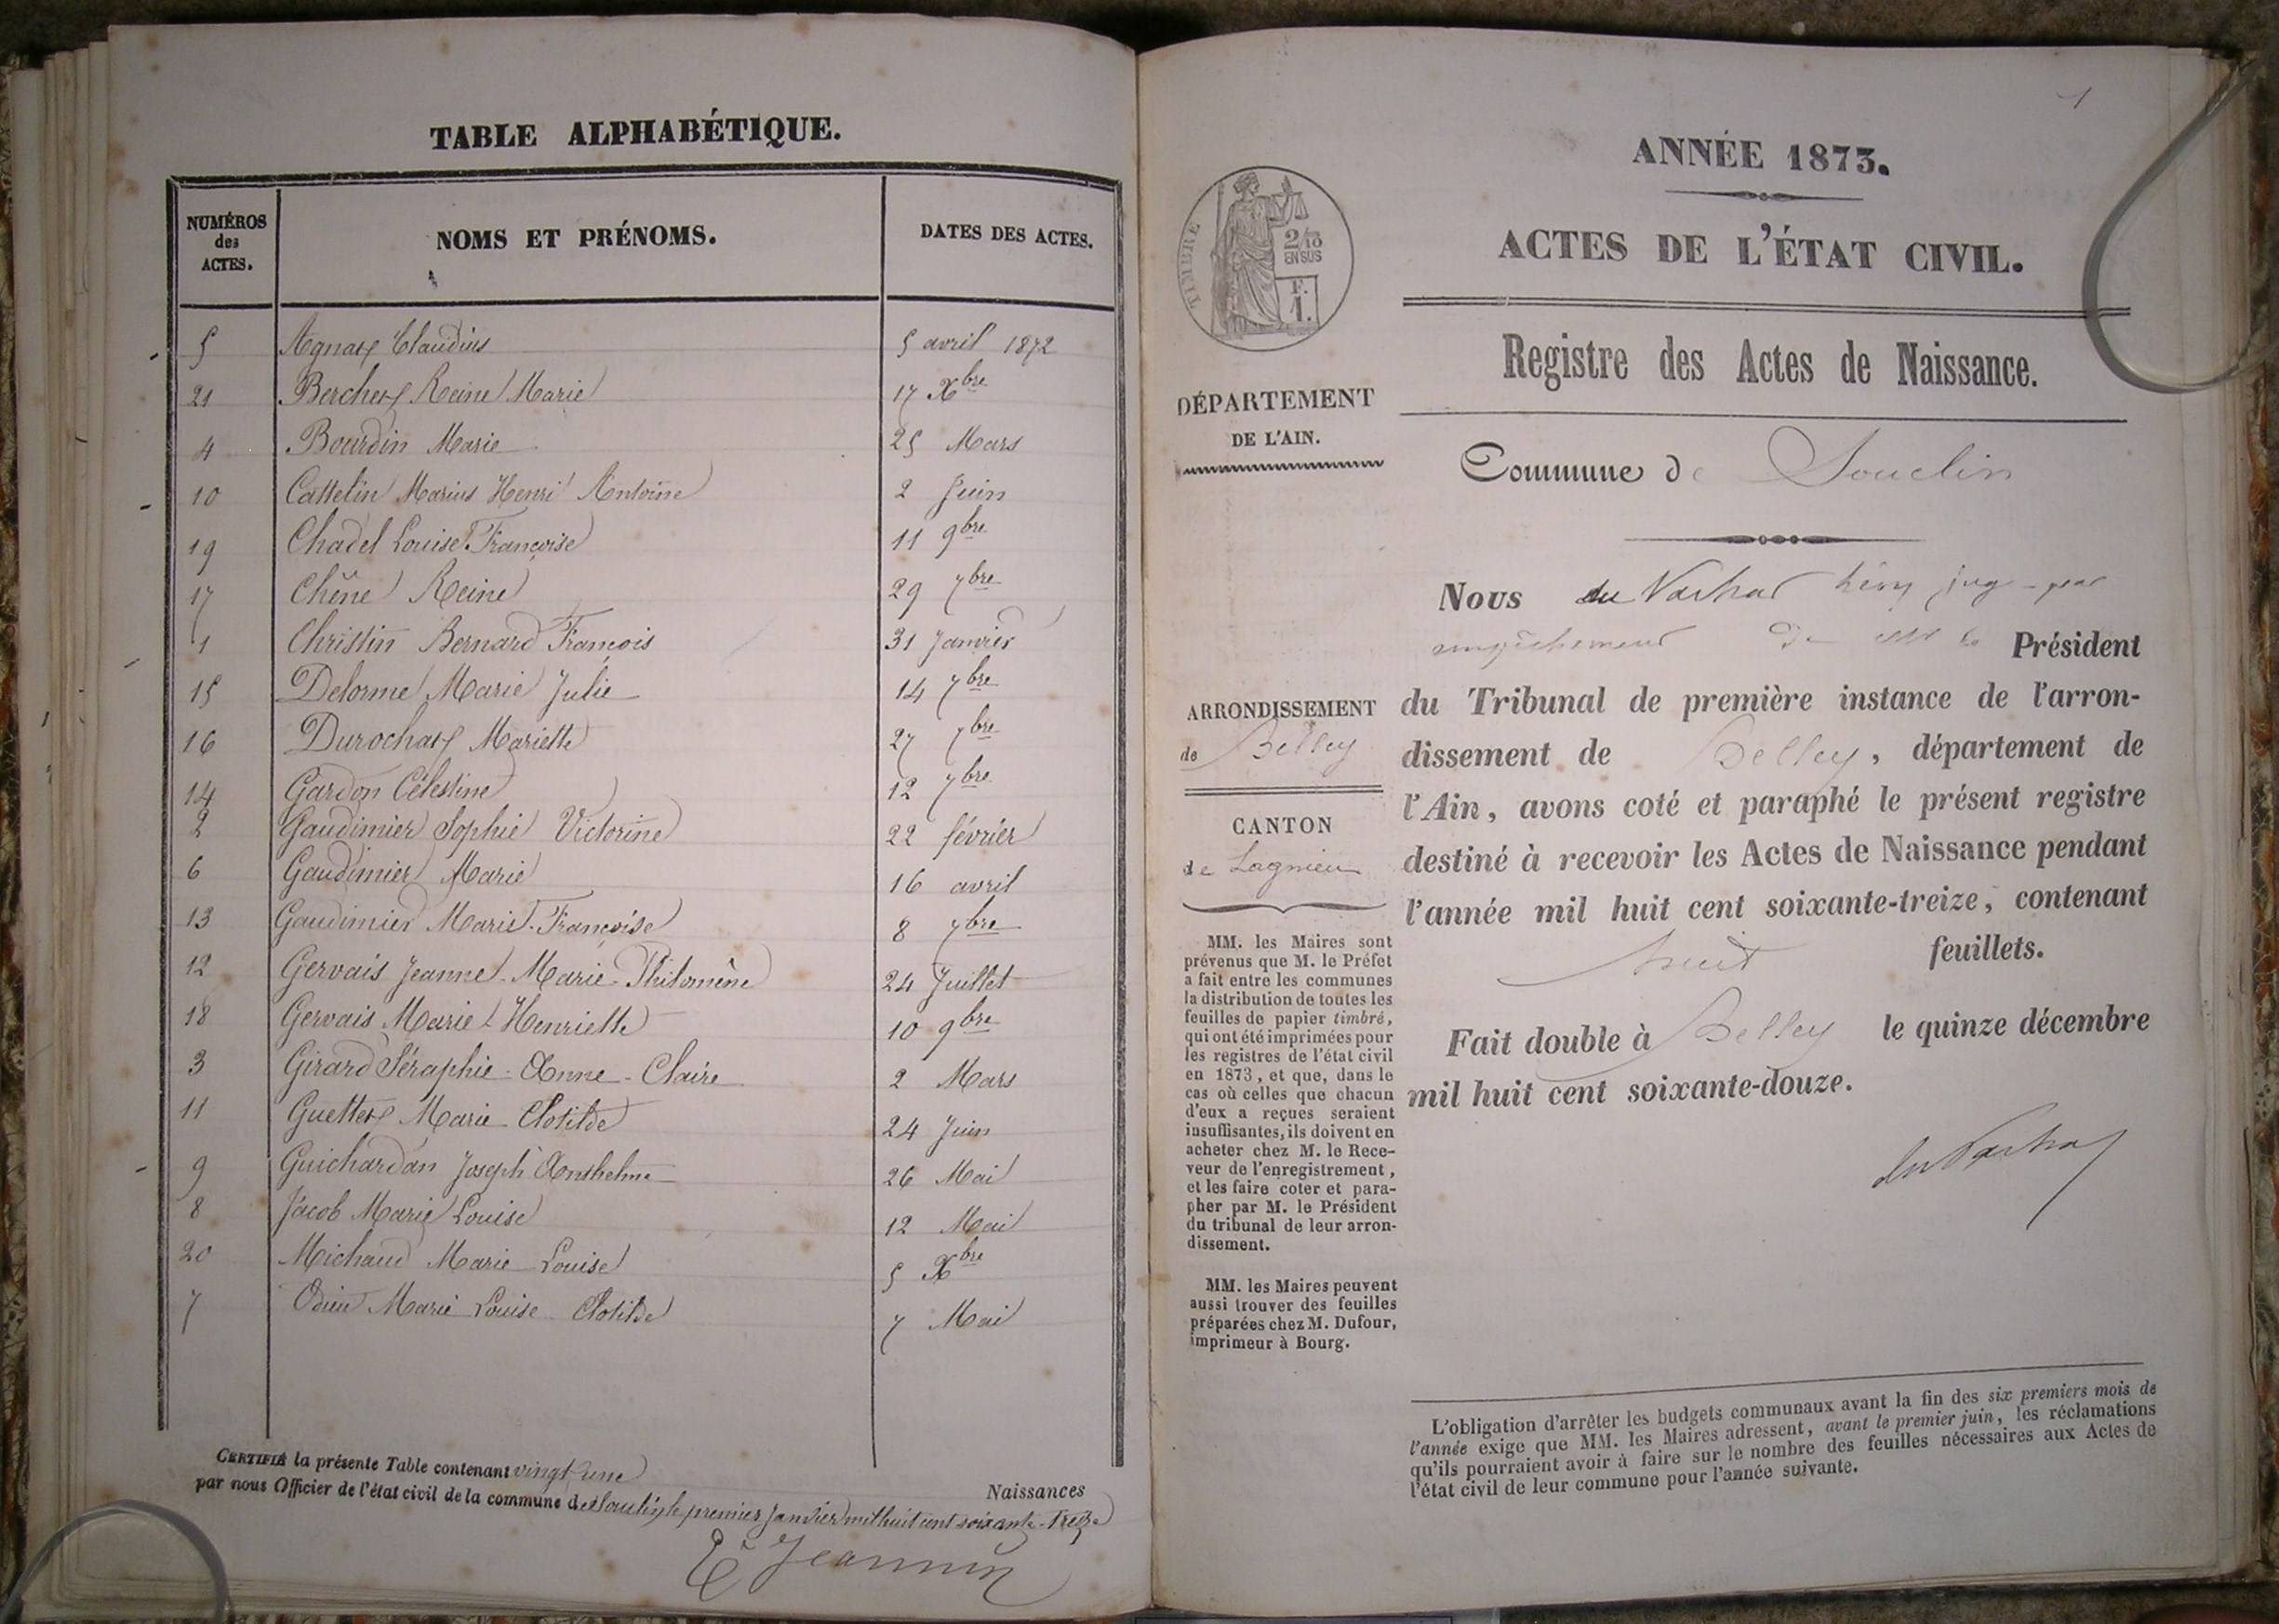 TABLE ALPHABÉTIQUE.
NUMÉROS des ACTES. NOMS ET PRÉNOMS. DATES DES ACTES.
5 Agnay Claudius 5 avril 1872
21 Berchey Reine Marie 17 Xbre
4 Bourdin Marie 25 Mars
10 Cattelin Marius Henri Antoine 2 Juin
19 Chadel Louise Françoise 11 9bre
17 Chêne Reine 29 7bre
1 Christin Bernard François 31 Janvier
15 Delorme Marie Julie 14 7bre
16 Durochay Mariette 27 7bre
14 Gardon Célestine 12 7bre
2 Gaudimier Sophie Victorine 22 février
6 Gaudimier Marie 16 avril
13 Gaudimier Marie-Françoise 8 7bre
12 Gervais Jeanne-Marie-Philomène 24 Juillet
18 Gervais Marie Henriette 10 9bre
3 Girard Séraphie-Anne-Claire 2 Mars
11 Guettey Marie Clotilde 24 Juin
9 Guichardan Joseph Anthelme 26 Mai
8 Jacob Marie Louise 12 Mai
20 Michaud Marie-Louise 5 Xbre
7 Odin Marie Louise Clotilde 7 Mai
CERTIFIÉ la présente Table contenant vingt une Naissances
par nous Officier de l'état civil de la commune de Souclin, le premier Janvier mil huit cent soixante-treize
E Jeannin
1
ANNÉE 1873.
ACTES DE L'ÉTAT CIVIL.
TIMBRE
2/10
EN SUS
F.
1.
Registre des Actes de Naissance.
DÉPARTEMENT
DE L'AIN.
Commune de Souclin
ARRONDISSEMENT
de Belley
CANTON
de Lagnieu
MM. les Maires sont
prévenus que M. le Préfet
a fait entre les communes
la distribution de toutes les
feuilles de papier timbré,
qui ont été imprimées pour
les registres de l'état civil
en 1873, et que, dans le
cas où celles que chacun
d'eux a reçues seraient
insuffisantes, ils doivent en
acheter chez M. le Rece-
veur de l'enregistrement,
et les faire coter et para-
pher par M. le Président
du tribunal de leur arron-
dissement.
MM. les Maires peuvent
aussi trouver des feuilles
préparées chez M. Dufour,
imprimeur à Bourg.
Nous du
empêchement de M le Président
du Tribunal de première instance de l'arron-
dissement de Belley, département de
l'Ain, avons coté et paraphé le présent registre
destiné à recevoir les Actes de Naissance pendant
l'année mil huit cent soixante-treize, contenant
huit feuillets.
Fait double à Belley le quinze décembre
mil huit cent soixante-douze.
L'obligation d'arrêter les budgets communaux avant la fin des six premiers mois de
l'année exige que MM. les Maires adressent, avant le premier juin, les réclamations
qu'ils pourraient avoir à faire sur le nombre des feuilles nécessaires aux Actes de
l'état civil de leur commune pour l'année suivante.